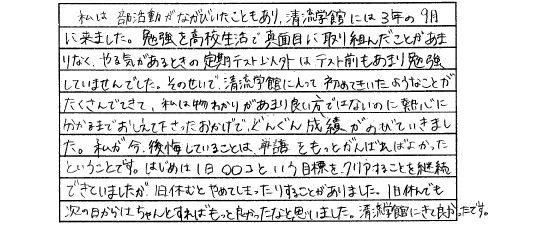 私は部活動がながびいたこともあり、清流学館には3年の9月
に来ました。勉強を高校生活で真面目に取り組んだことがあま
りなく、やる気があるときの定期テスト以外はテスト前もあまり勉強
していませんでした。そのせいで、清流学館に入って初めてきいたようなことが
たくさんでてきて、私は物わかりがあまり良い方ではないのに熱心に
分かるまでおしえて下さったおかげで、どんどん成績がのびていきまし
た。私が今、後悔していることは、単語をもっとがんばればよかった
ということです。はじめは1日〇〇コという目標をクリアすることを継続
できていましたが、1日休むとやめてしまったりすることがありました。1日休んでも
次の日からはちゃんとすればもっと良かったなと思いました。清流学館にきて良かったです。